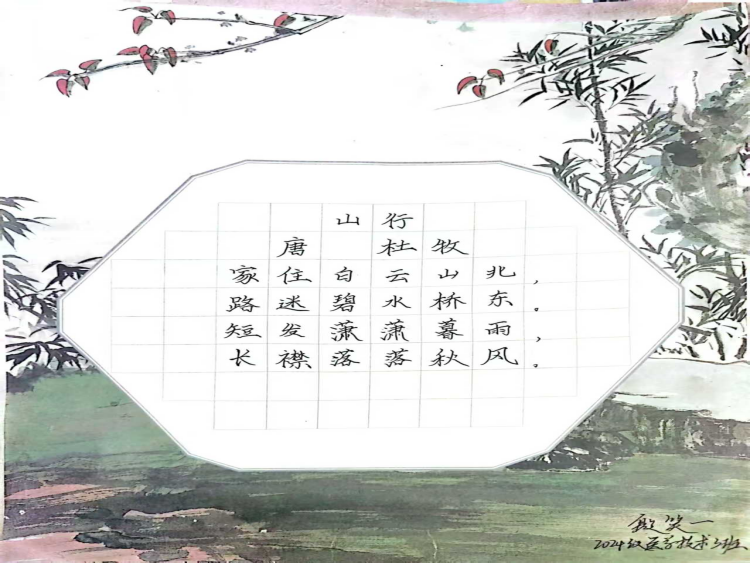 山行
唐 杜牧
家住白云山北，
路迷碧水桥东。
短发萧萧暮雨，
长襟落落秋风。
笑一
2024级医学技术3班